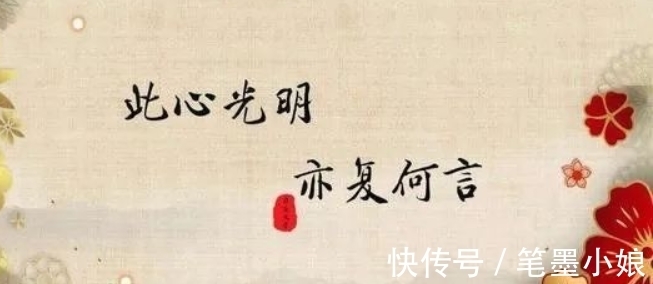 此心光明
亦复何言
快传号 / 笔墨小娘